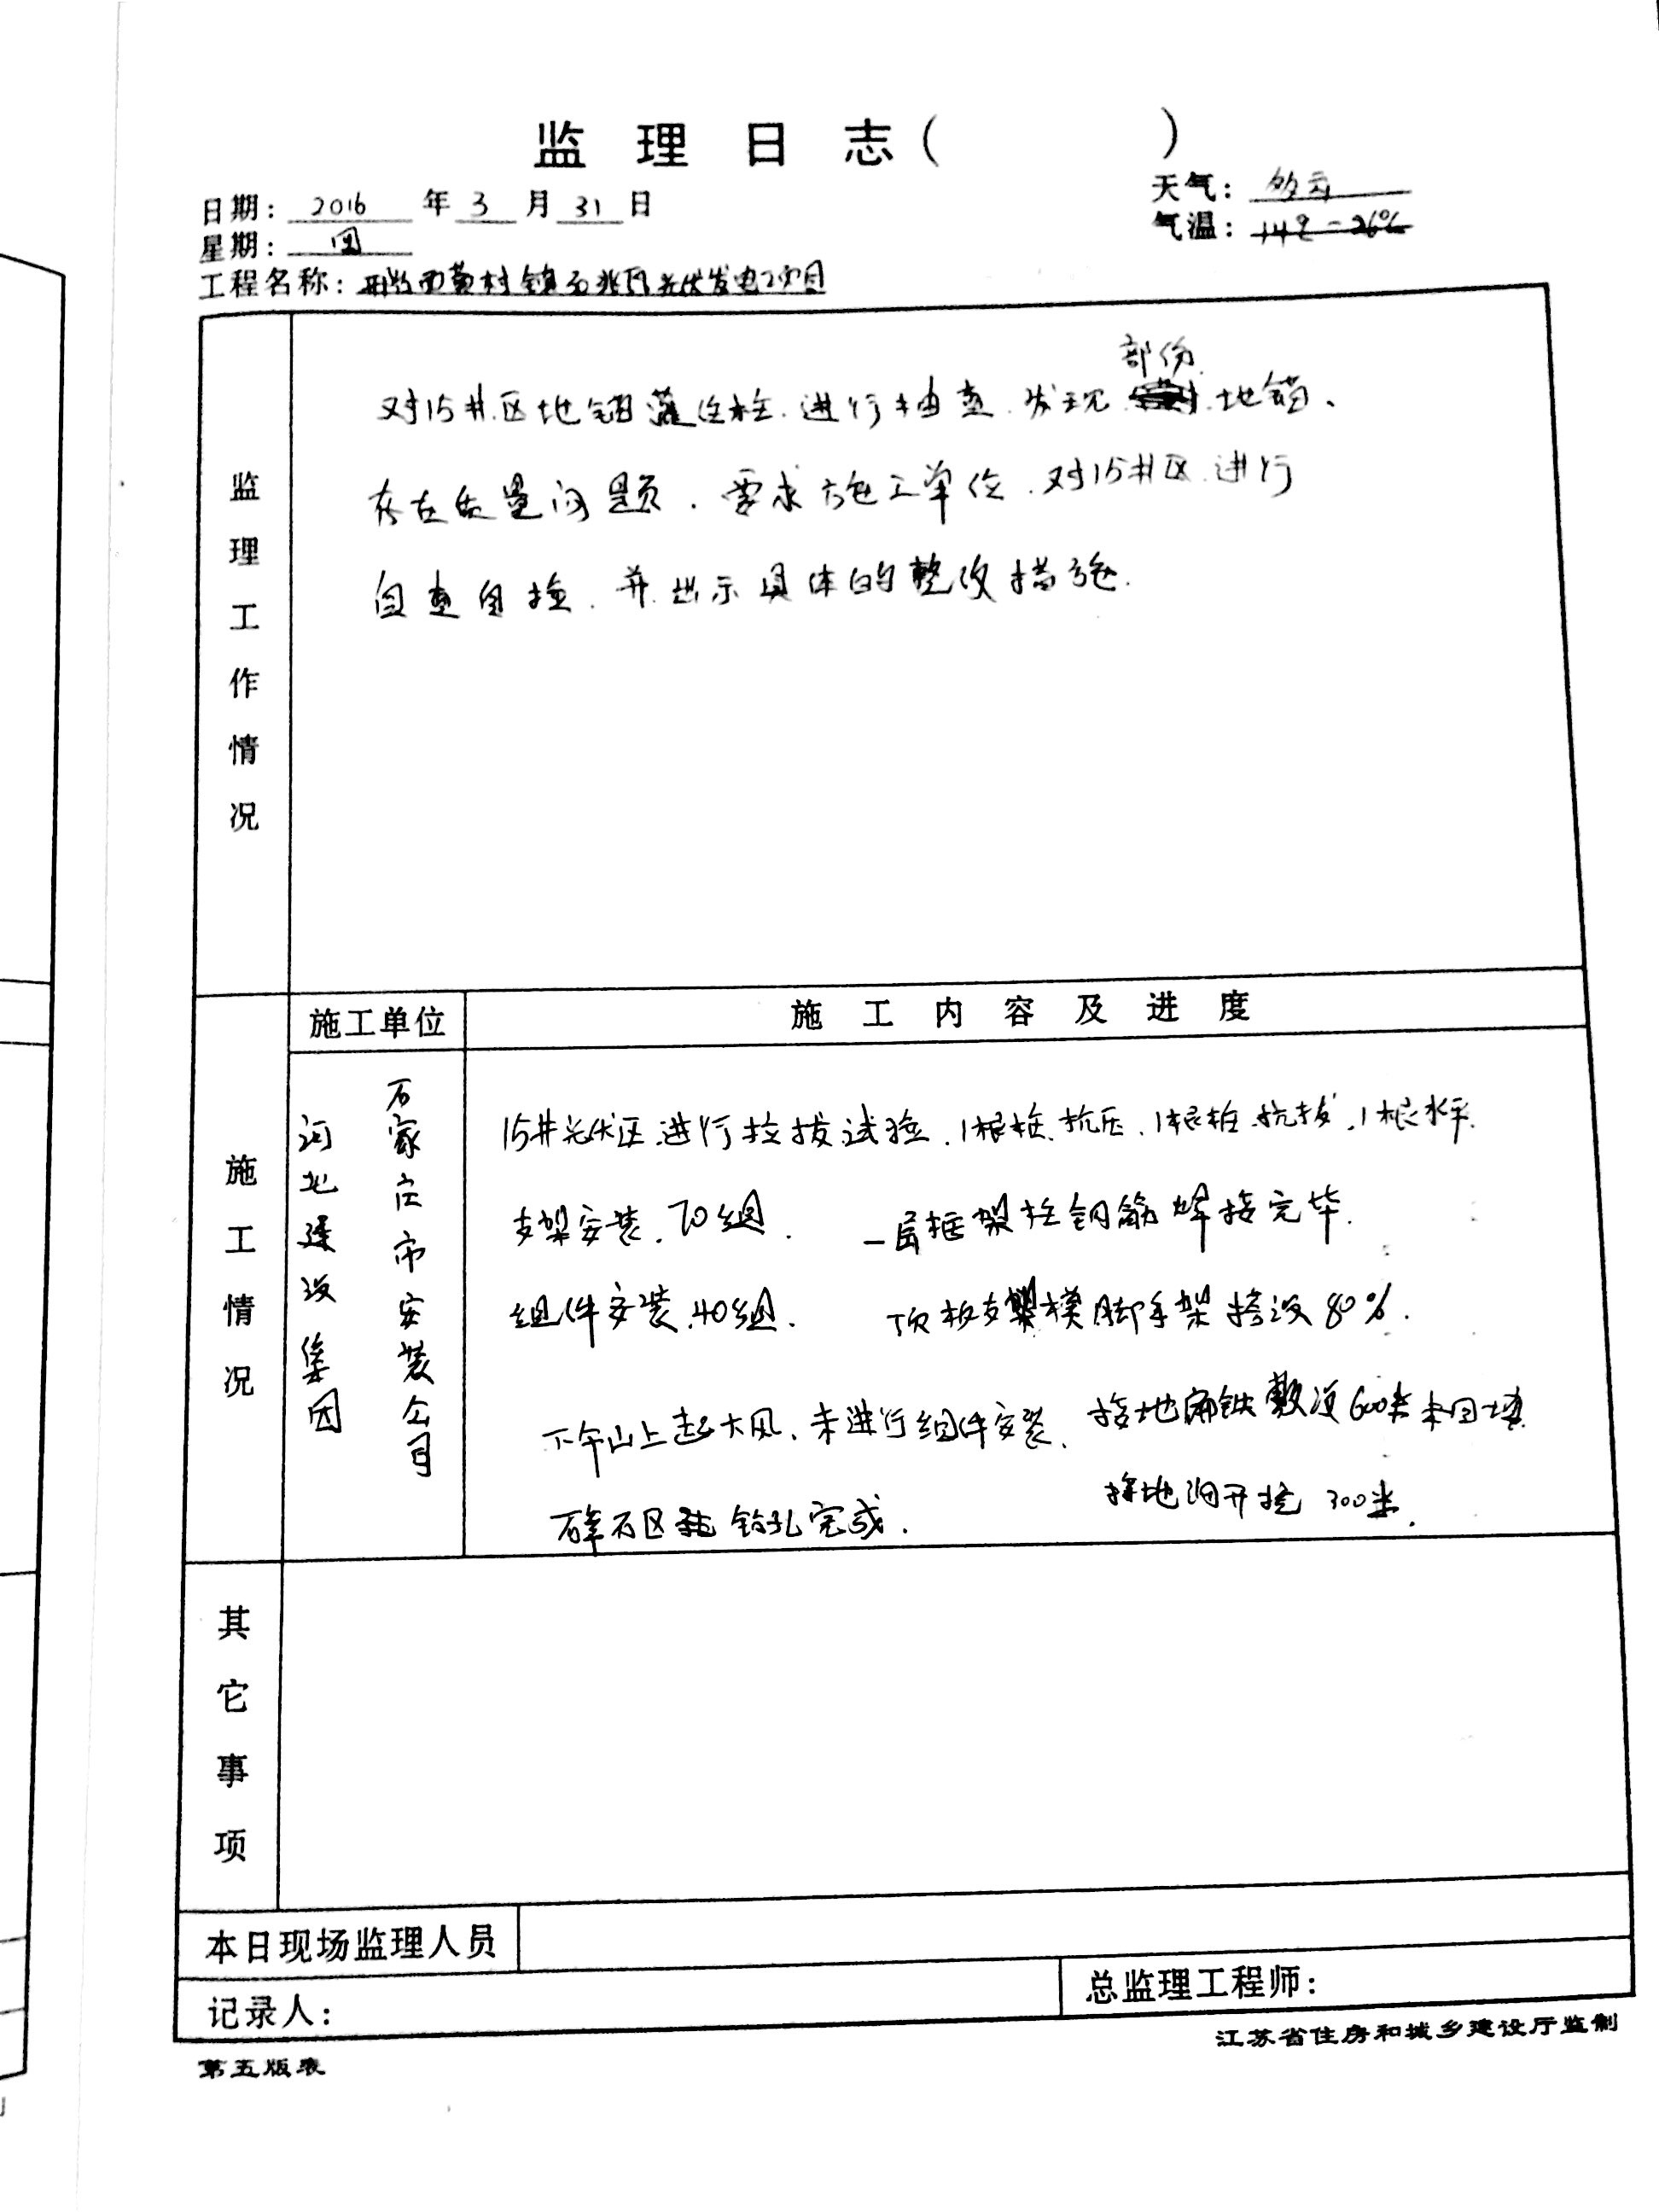 监理日志(　　　)
日期: 2016 年 3 月 31 日
天气: 多云
星期: 四
气温: 14℃-26℃
工程名称: 西黄村镇石 光伏发电项目
监理工作情况
部份
对15井区地锚灌注桩.进行抽查.发现 地锚、
存在质量问题.要求施工单位.对15井区.进行
自查自检.并出示具体的整改措施.
施工情况
施工单位
施工内容及进度
石家庄市安装公司
河北建设集团
15井光伏区进行拉拔试验.1根桩.抗压.1根桩.抗拔,1根水平.
支架安装.70组. 一层框架柱钢筋焊接完毕.
组件安装.40组. 顶板支架模脚手架搭设80%.
下午山上起大风、未进行组件安装、 接地扁铁敷设600米未回填
碎石区 钻孔完成. 接地沟开挖 300米.
其它事项
本日现场监理人员
记录人:
总监理工程师:
江苏省住房和城乡建设厅监制
第五版表